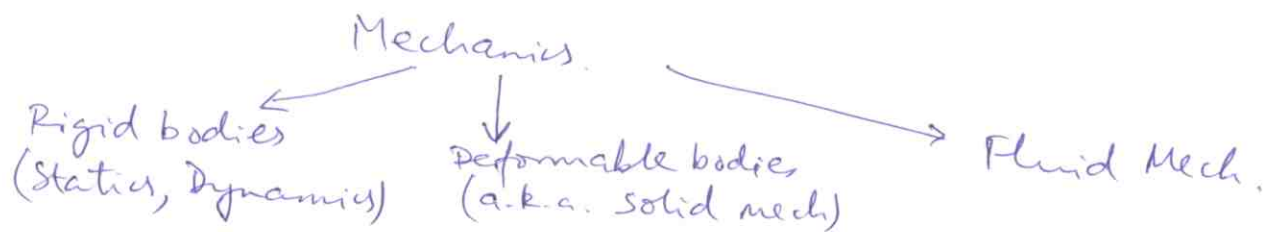 Mechanics.
Rigid bodies
(Statics, Dynamics)
Deformable bodies
(a.k.a. solid mech)
Fluid Mech.